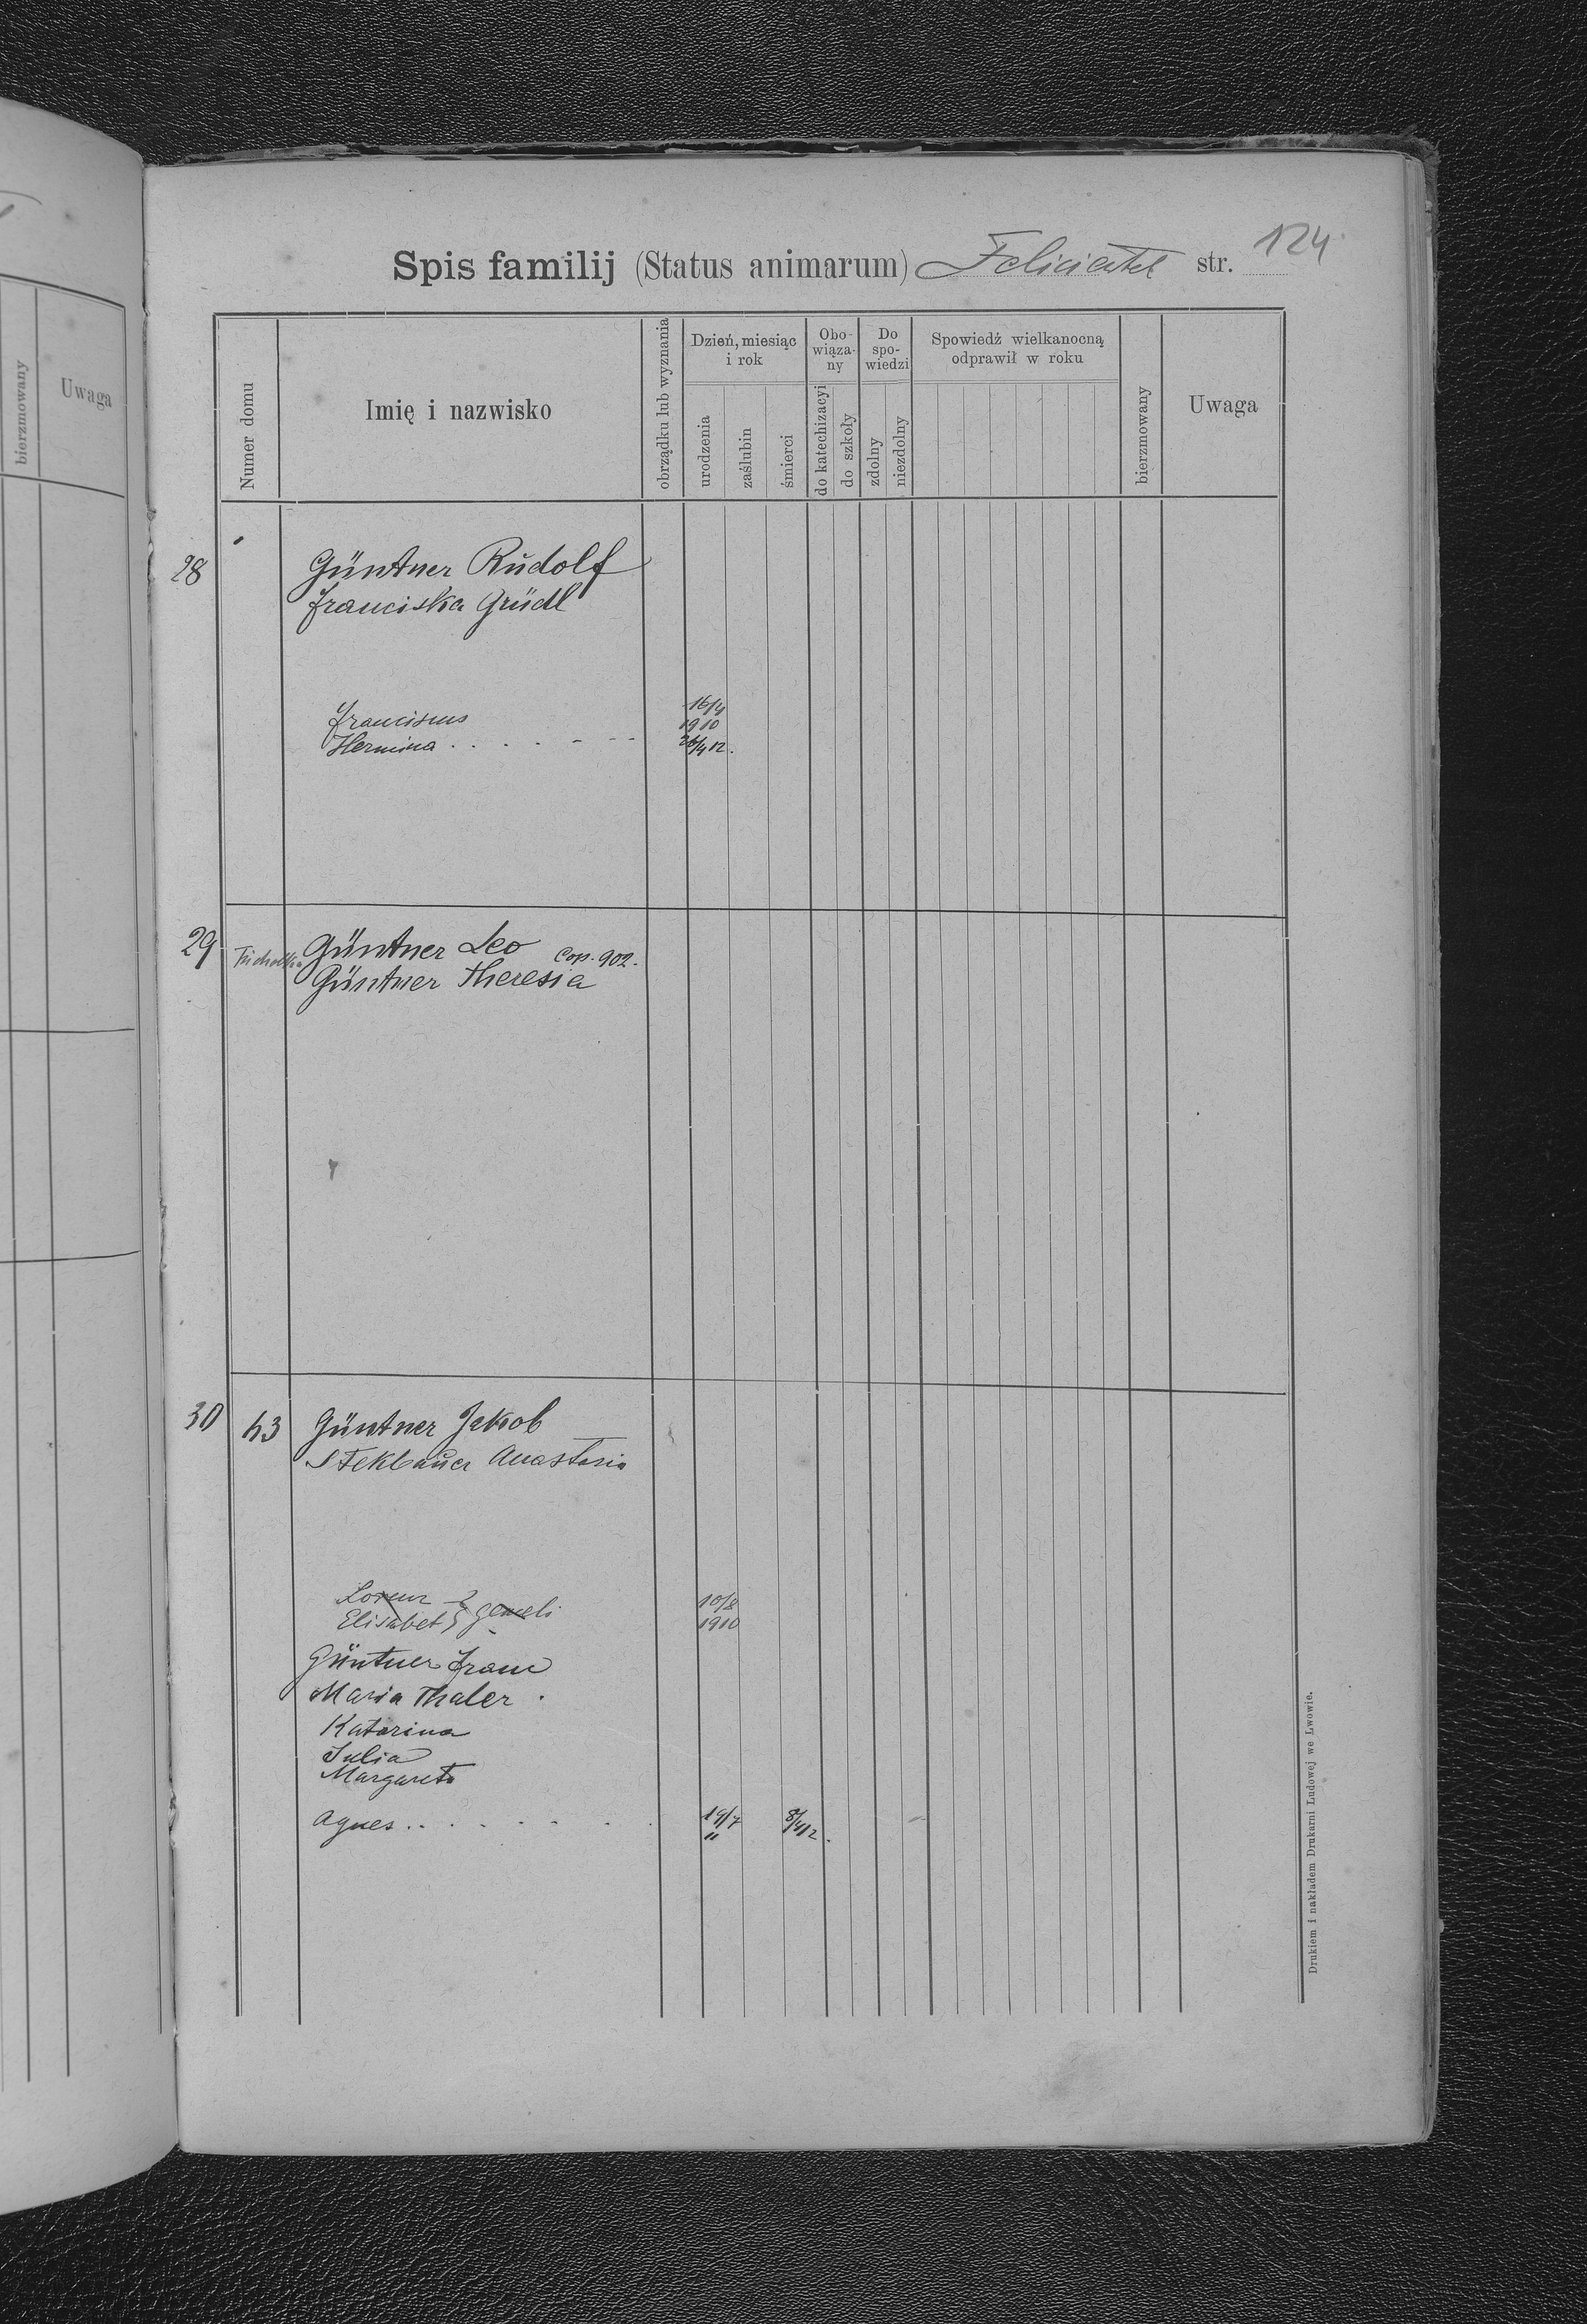 Uwaga
bierzmowany
Spis familij (Status animarum) Feliciental str. 124
Numer domu
Imię i nazwisko
obrządku lub wyznania
Dzień, miesiąc i rok
urodzenia
zaślubin
śmierci
Obo-wiąza-ny
do katechizacyi
do szkoły
Do spo-wiedzi
zdolny
niezdolny
Spowiedź wielkanocną odprawił w roku
bierzmowany
Uwaga
28 Güntner Rudolf
Franciska Gründl
Franciscus 16/4 1910
Hermina . . . . - - - 26/4 12.
29 Güntner Leo Cop. 902.
Güntner Theresia
30 43 Güntner Jakob
Stekbauer Anastasia
Lorenz
Elisabet } gemeli 10/8 1910
Güntner Franc
Maria Thaler .
Katarina
Julia
Margareta
Agnes . . . . . . . . 19/7 11 8/4 12.
Drukiem i nakładem Drukarni Ludowej we Lwowie.